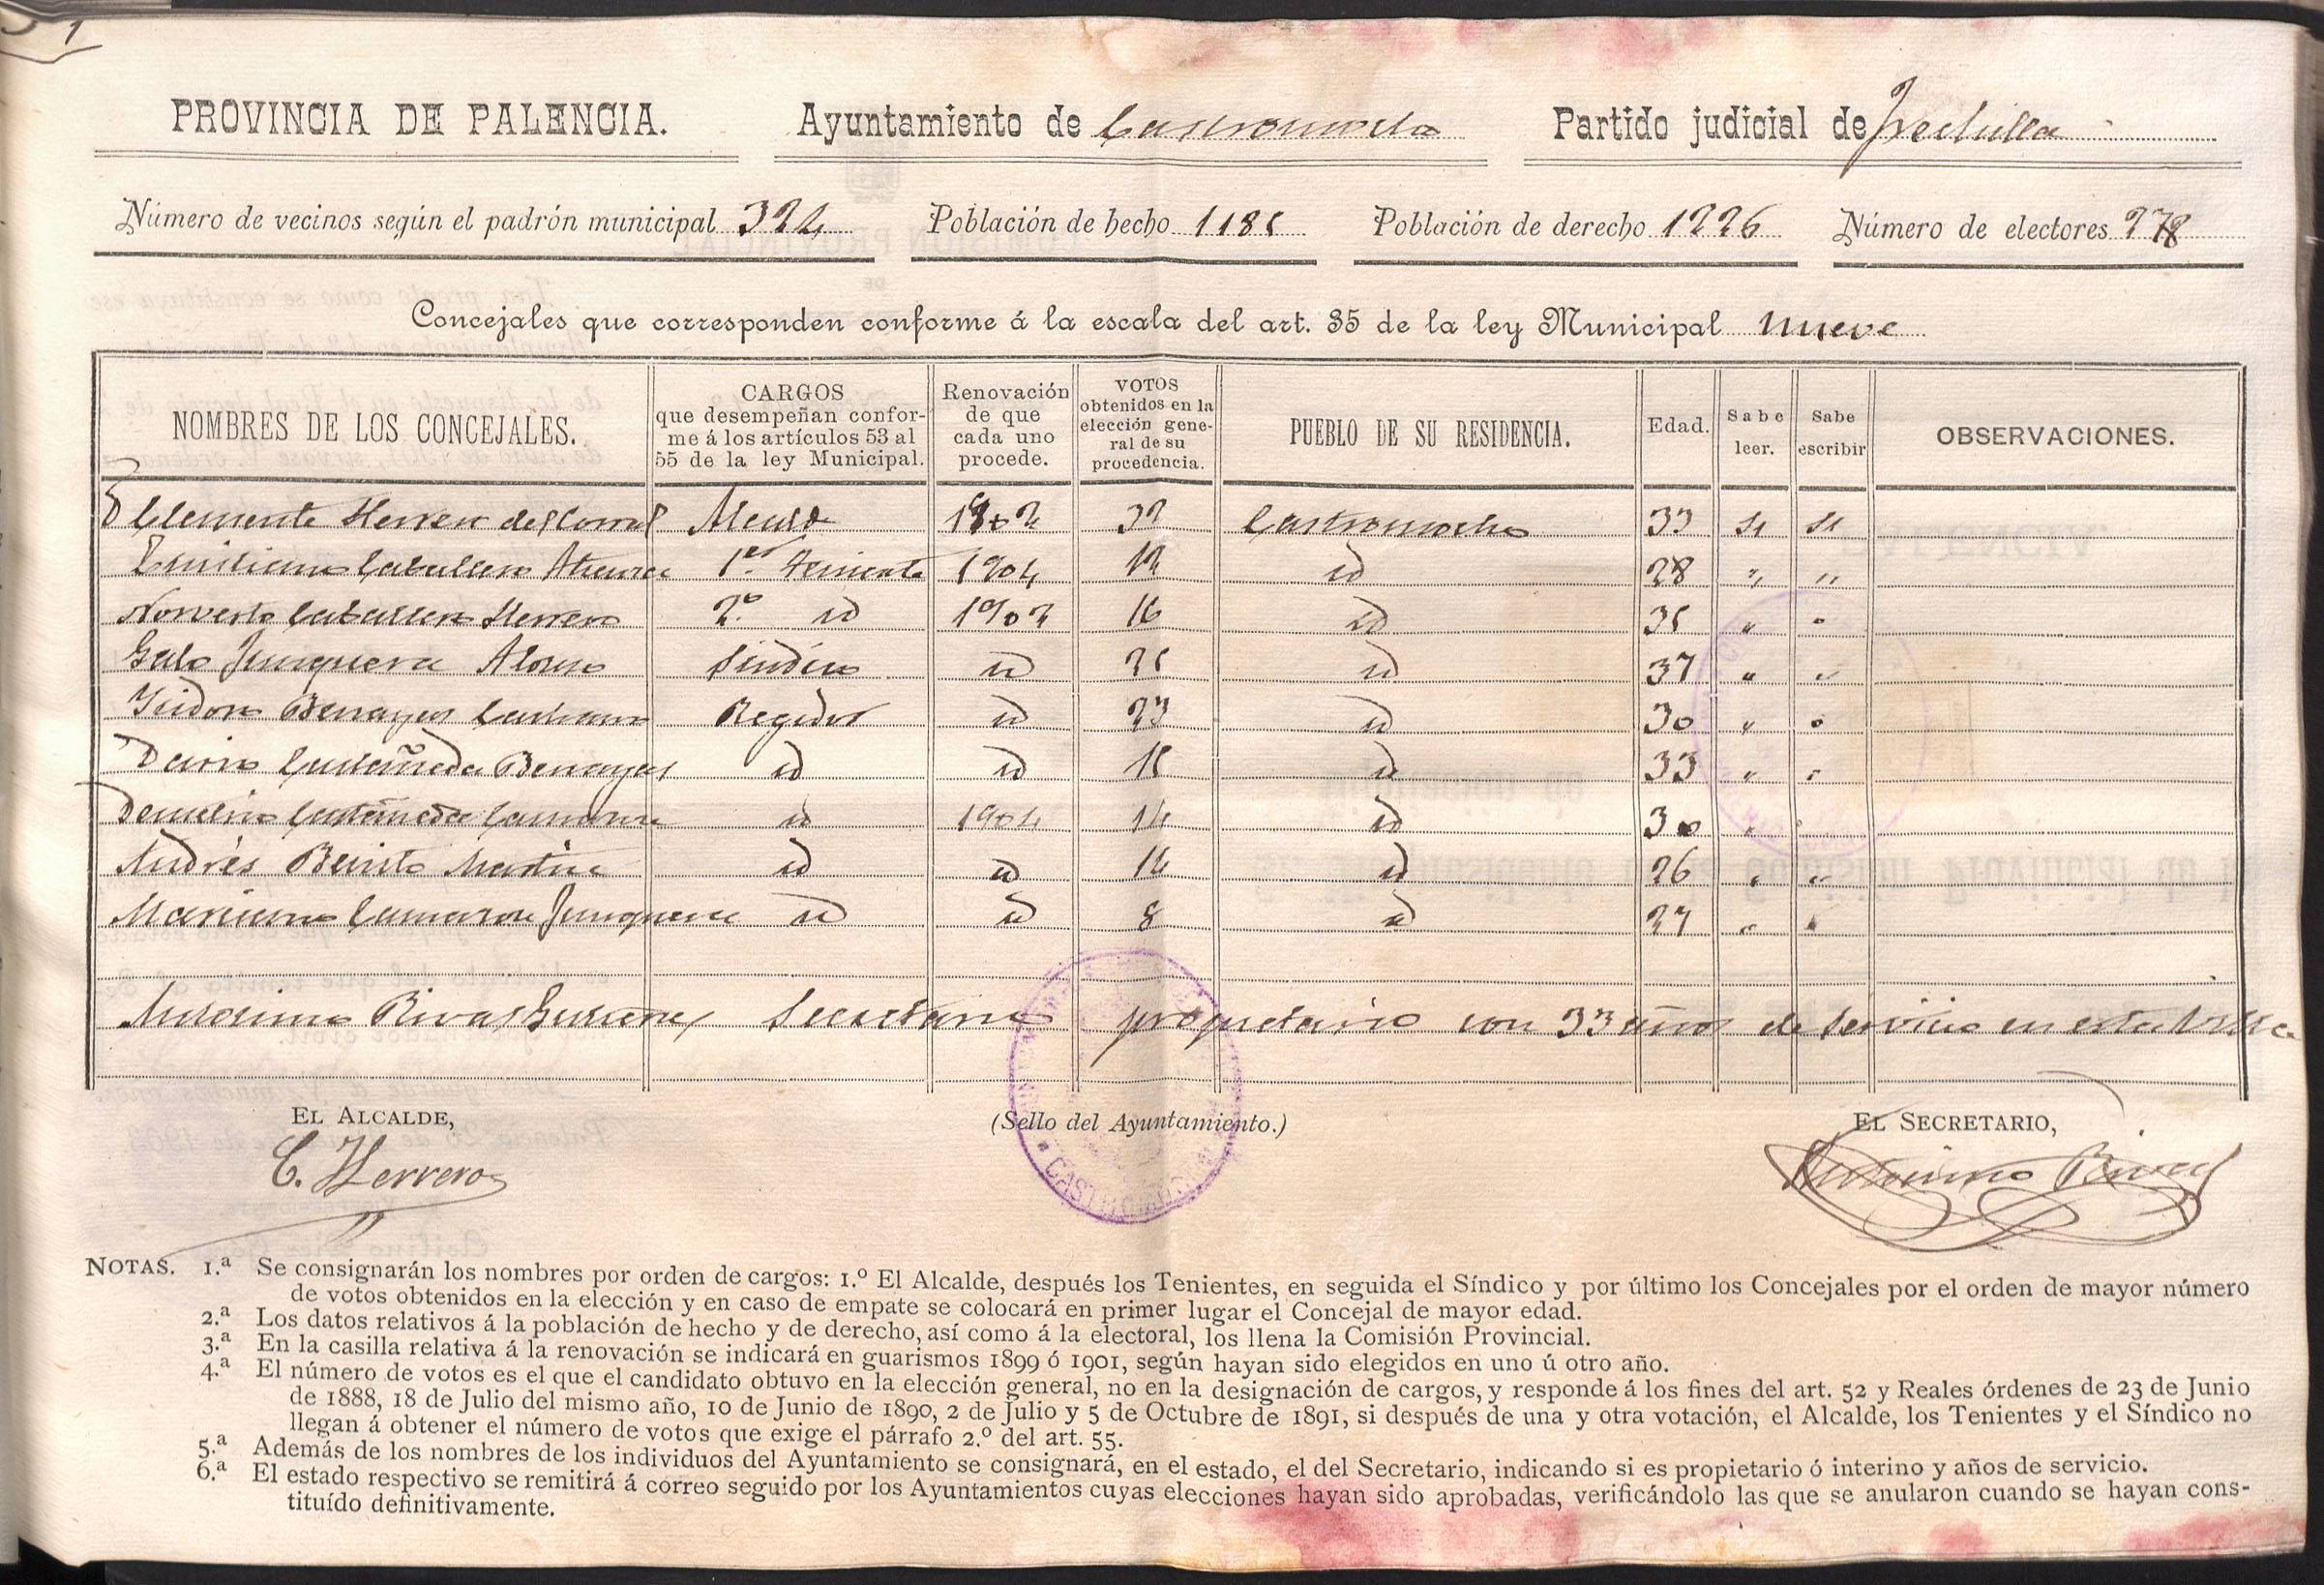 PROVINCIA DE PALENCIA. Ayuntamiento de Castromocho Partido judicial de Frechilla
Número de vecinos según el padrón municipal 324 Población de hecho 1185 Población de derecho 1226 Número de electores 278
Concejales que corresponden conforme á la escala del art. 35 de la ley Municipal nueve
NOMBRES DE LOS CONCEJALES. CARGOS que desempeñan conforme á los artículos 53 al 55 de la ley Municipal. Renovación de que cada uno procede. VOTOS obtenidos en la elección general de su procedencia. PUEBLO DE SU RESIDENCIA. Edad. Sabe leer. Sabe escribir OBSERVACIONES.
D Clemente Herrero del Corral Alcalde 1902 32 Castromocho 33 Si Si
Emiliano Caballero 1er Teniente 1904 12 id 28 " "
Norverto Caballero Herrero 2º id 1902 16 id 35 " "
Galo Junquera Alonso Sindico id 25 id 37 " "
Isidoro Benayas Regidor id 23 id 30 " "
Dario Castañeda Benayas id id 15 id 33 " "
Castañeda Camazon id 1904 14 id 30 "
Andrés Benito Martin id id 12 id 26 " "
Mariano Camazon Junquera id id 8 id 27 " "
Antonino Rivas Gutierrez Secretario propietario con 33 años de servicio en esta Villa
EL ALCALDE, (Sello del Ayuntamiento.) EL SECRETARIO,
C. Herrero Antonino Rivas
NOTAS. 1.ª Se consignarán los nombres por orden de cargos: 1.º El Alcalde, después los Tenientes, en seguida el Síndico y por último los Concejales por el orden de mayor número
de votos obtenidos en la elección y en caso de empate se colocará en primer lugar el Concejal de mayor edad.
2.ª Los datos relativos á la población de hecho y de derecho, así como á la electoral, los llena la Comisión Provincial.
3.ª En la casilla relativa á la renovación se indicará en guarismos 1899 ó 1901, según hayan sido elegidos en uno ú otro año.
4.ª El número de votos es el que el candidato obtuvo en la elección general, no en la designación de cargos, y responde á los fines del art. 52 y Reales órdenes de 23 de Junio
de 1888, 18 de Julio del mismo año, 10 de Junio de 1890, 2 de Julio y 5 de Octubre de 1891, si después de una y otra votación, el Alcalde, los Tenientes y el Síndico no
llegan á obtener el número de votos que exige el párrafo 2.º del art. 55.
5.ª Además de los nombres de los individuos del Ayuntamiento se consignará, en el estado, el del Secretario, indicando si es propietario ó interino y años de servicio.
6.ª El estado respectivo se remitirá á correo seguido por los Ayuntamientos cuyas elecciones hayan sido aprobadas, verificándolo las que se anularon cuando se hayan cons-
tituído definitivamente.